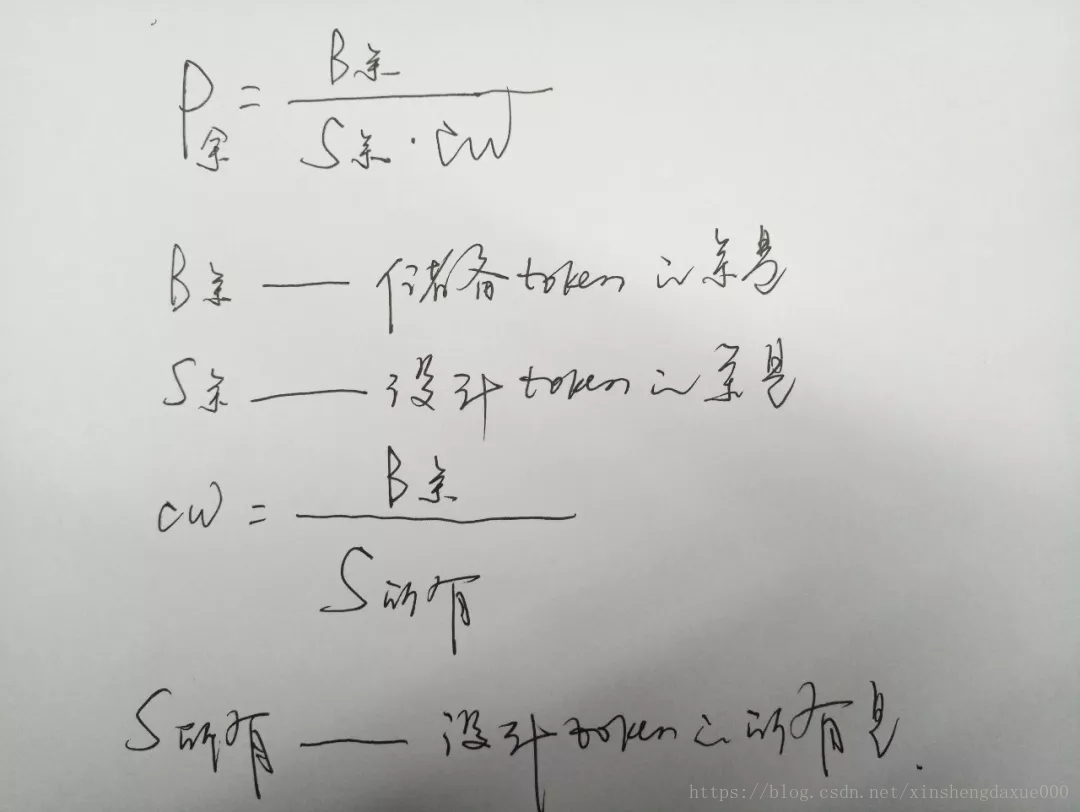 P余 = B余 / (S余·CW)
B余 —— 储备token之余量
S余 —— 设计token之余量
CW = B余 / S所有
S所有 —— 设计token之所有量.
https://blog.csdn.net/xinshengdaxue000